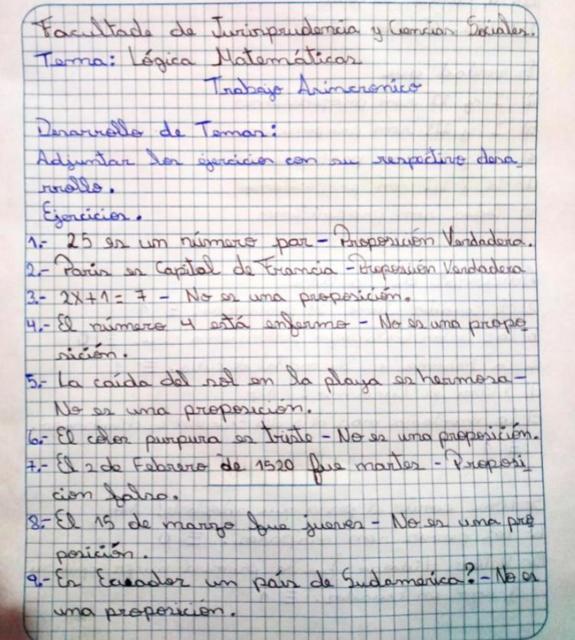 Facultade de Jurisprudencia y Ciencias Sociales.
Tema: Lógica Matemáticas
Trabajo Asincronico
Desarrollo de Temas:
Adjuntar los ejercicios con su respectivo desa_
rrollo.
Ejercicios.
1.- 25 es un número par - Proposición Verdadera.
2.- París es Capital de Francia - Proposición Verdadera
3.- 2x+1 = 7 - No es una proposición.
4.- El número 4 está enfermo - No es una propo_
sición.
5.- La caída del sol en la playa es hermosa -
No es una proposición.
6.- El color purpura es triste - No es una proposición.
7.- El 2 de Febrero de 1520 fue martes - Proposi_
cion falso.
8.- El 15 de marzo fue jueves - No es una pro
posición.
9.- Es Ecuador un país de Sudamerica? - No es
una proposición.